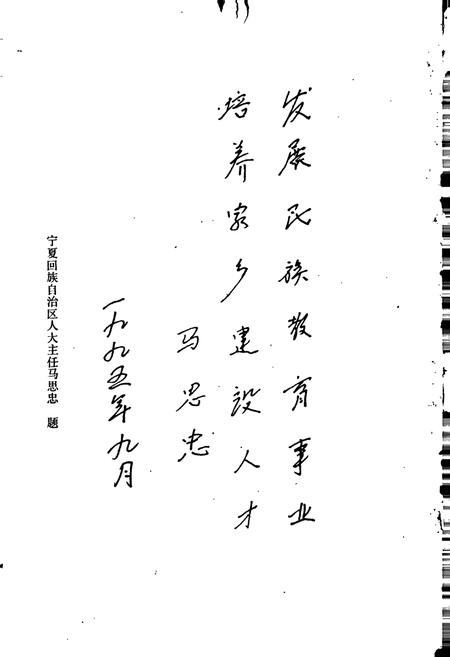 发展民族教育事业
培养家乡建设人才
马思忠
一九九五年九月
宁夏回族自治区人大主任马思忠 题